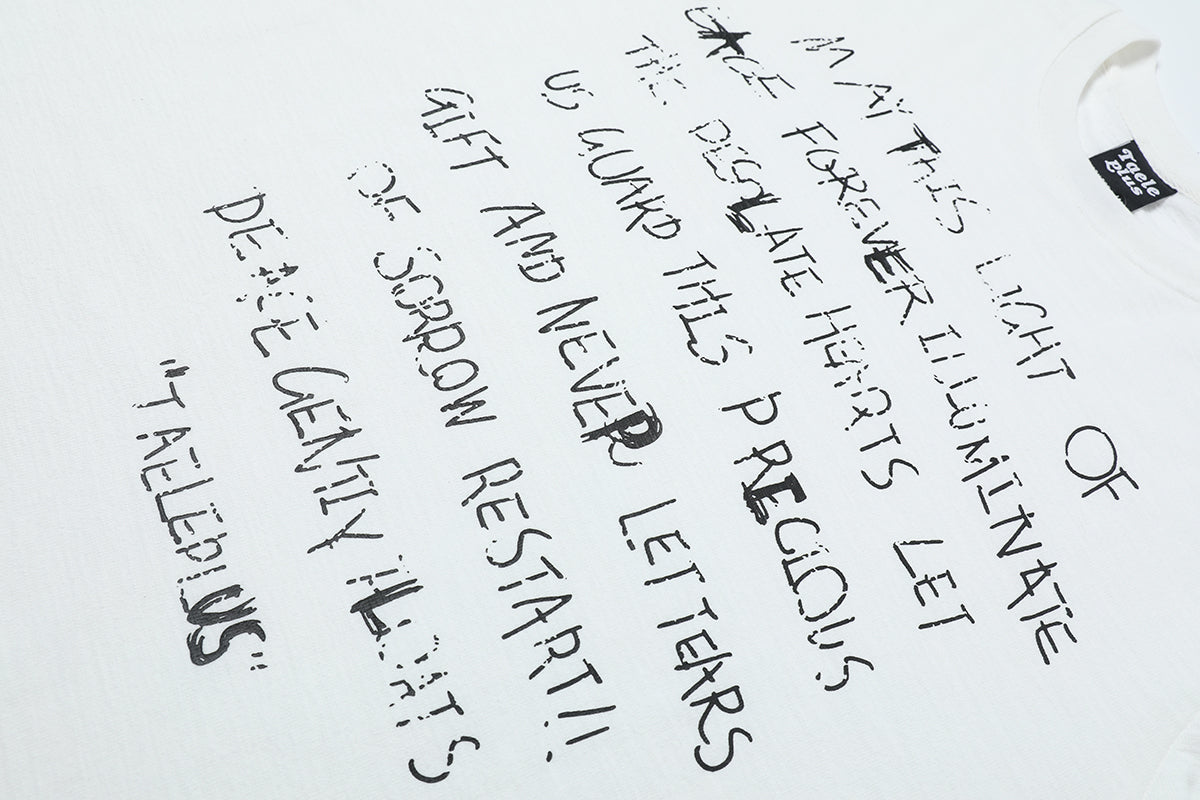 MAY THIS LIGHT OF
FOREVER ILLUMINATE
THE DESOLATE HEARTS LET
US GUARD THIS PRECIOUS
GIFT AND NEVER LET TEARS
OF SORROW RESTART!!
PEACE GENTLY FLOATS
"TAELEPLUS"
Taele
Plus